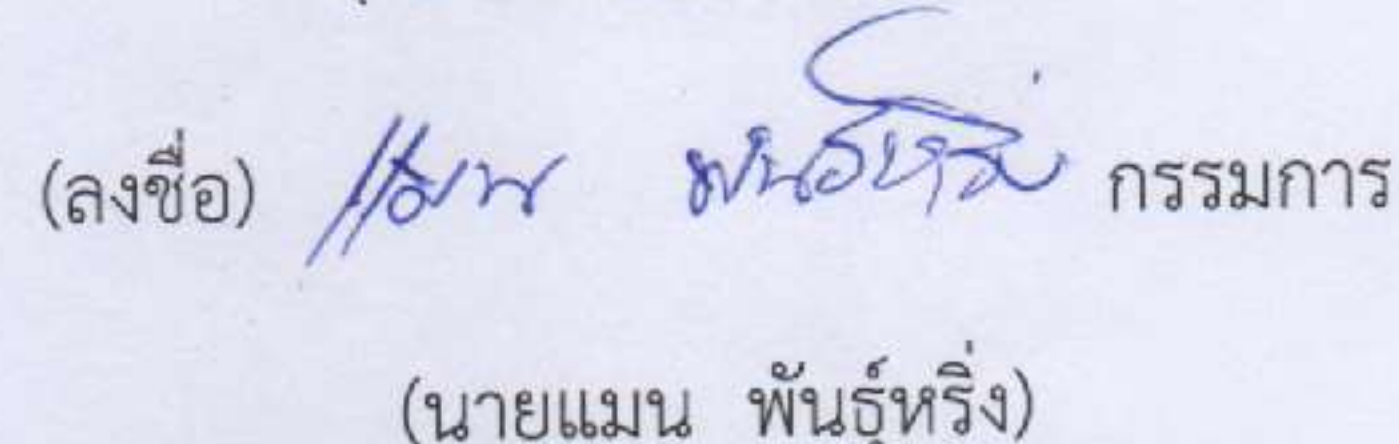 (ลงชื่อ) แมน พันธุ์หริ่ง กรรมการ
(นายแมน พันธุ์หริ่ง)